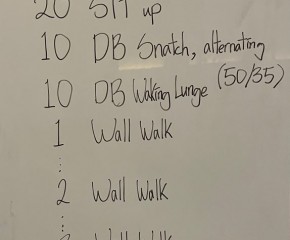 20 SIT up
10 DB Snatch, alternating
10 DB Waking Lunge (50/35)
1 Wall Walk
⋮
2 Wall Walk
⋮
Wall Walk